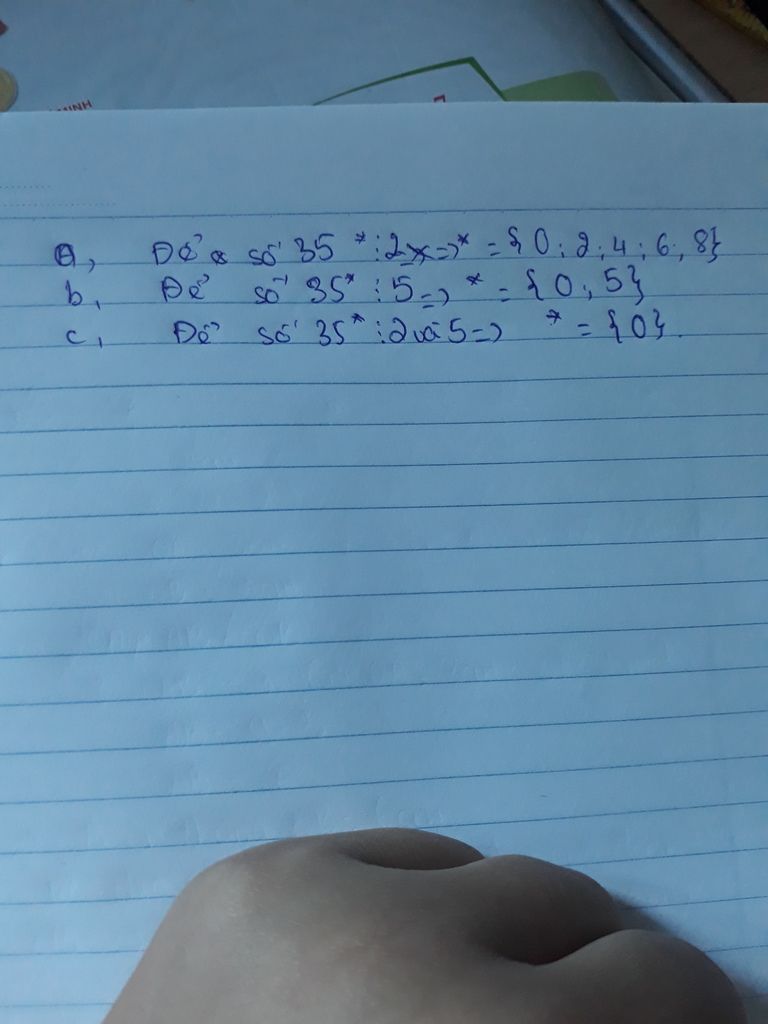 MINH
a, Để số 35 * ⋮ 2 => * = { 0 ; 2 ; 4 ; 6 ; 8}
b, Để số 35* ⋮ 5 => * = { 0 ; 5 }
c, Để số 35* ⋮ 2 và 5 => * = { 0 }.